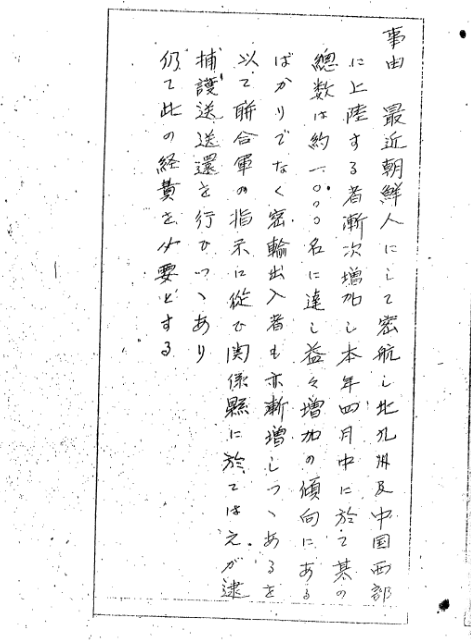 事由　最近朝鮮人にして密航し北九州及中国西部
に上陸する者漸次増加し本年四月中に於て其の
總数は約一〇〇〇名に達し益々増加の傾向にある
ばかりでなく密輸出入者も亦漸増しつゝあるを
以て聯合軍の指示に從ひ関係縣に於ては之が逮
捕護送送還を行ひつゝあり
仍て此の経費を必要とする